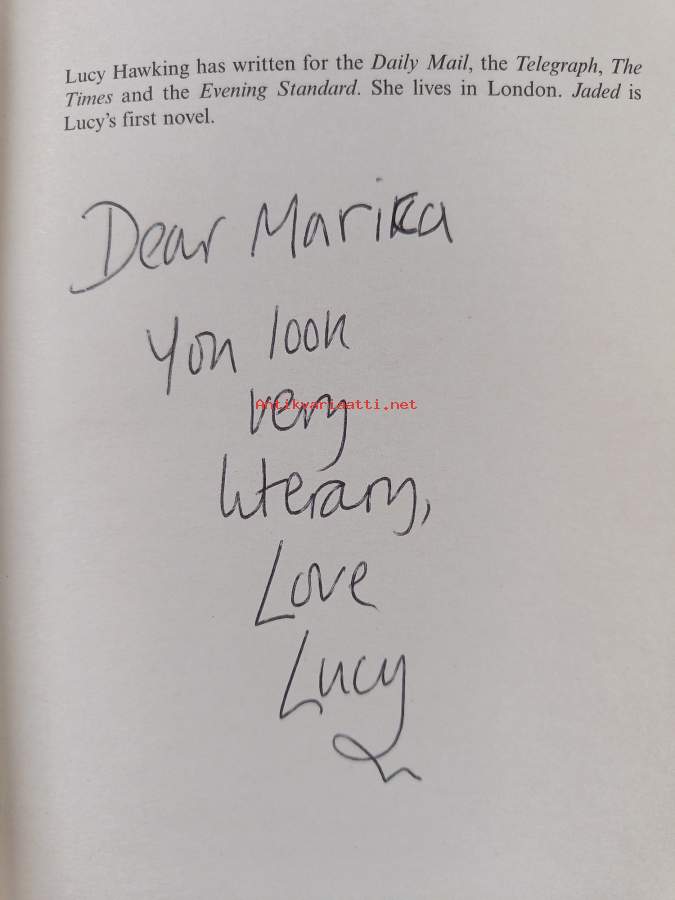 Lucy Hawking has written for the Daily Mail, the Telegraph, The
Times and the Evening Standard. She lives in London. Jaded is
Lucy's first novel.
Dear Marika
You look
very
Antikvariaatti.net
literary,
Love
Lucy